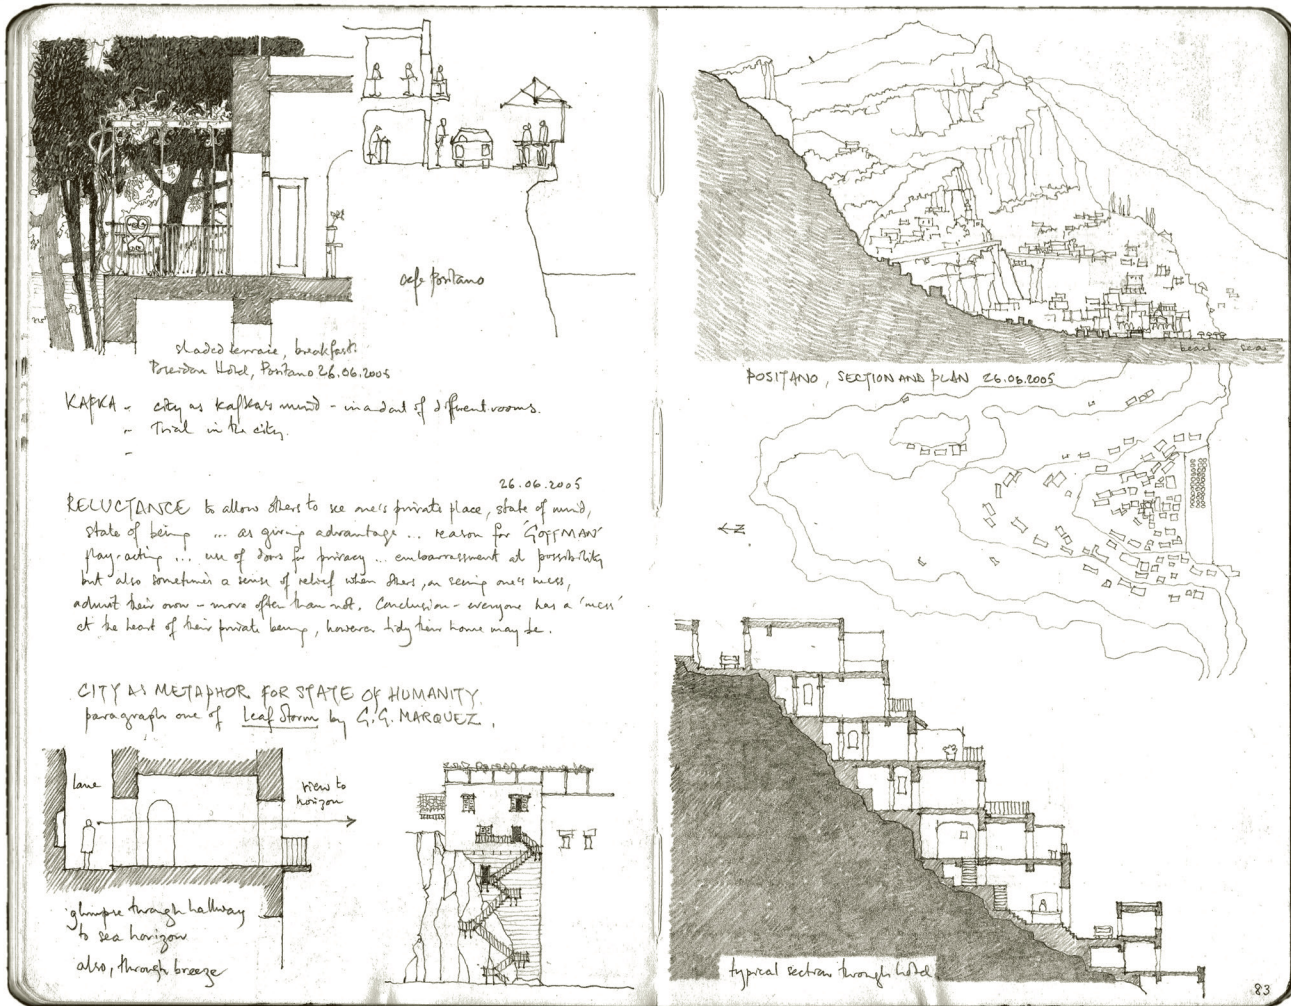 cafe Positano
shaded terrace, breakfast.
Poseidon Hotel, Positano 26.06.2005
KAFKA - city as Kafka's mind - in and out of different rooms.
- Trial in the city.
-
26.06.2005
RELUCTANCE to allow others to see one's private place, state of mind,
state of being ... as giving advantage ... reason for 'GOFFMAN'
play-acting ... use of doors for privacy ... embarrassment at possibility
but also sometimes a sense of relief when others, on seeing one's mess,
admit their own - more often than not. Conclusion - everyone has a 'mess'
at the heart of their private being, however tidy their home may be.
CITY AS METAPHOR FOR STATE OF HUMANITY
paragraph one of Leaf Storm by G.G. MARQUEZ.
lane
view to
horizon
glimpse through hallway
to sea horizon
also, through breeze
beach sea
POSITANO, SECTION AND PLAN 26.06.2005
N
typical section through hotel
83